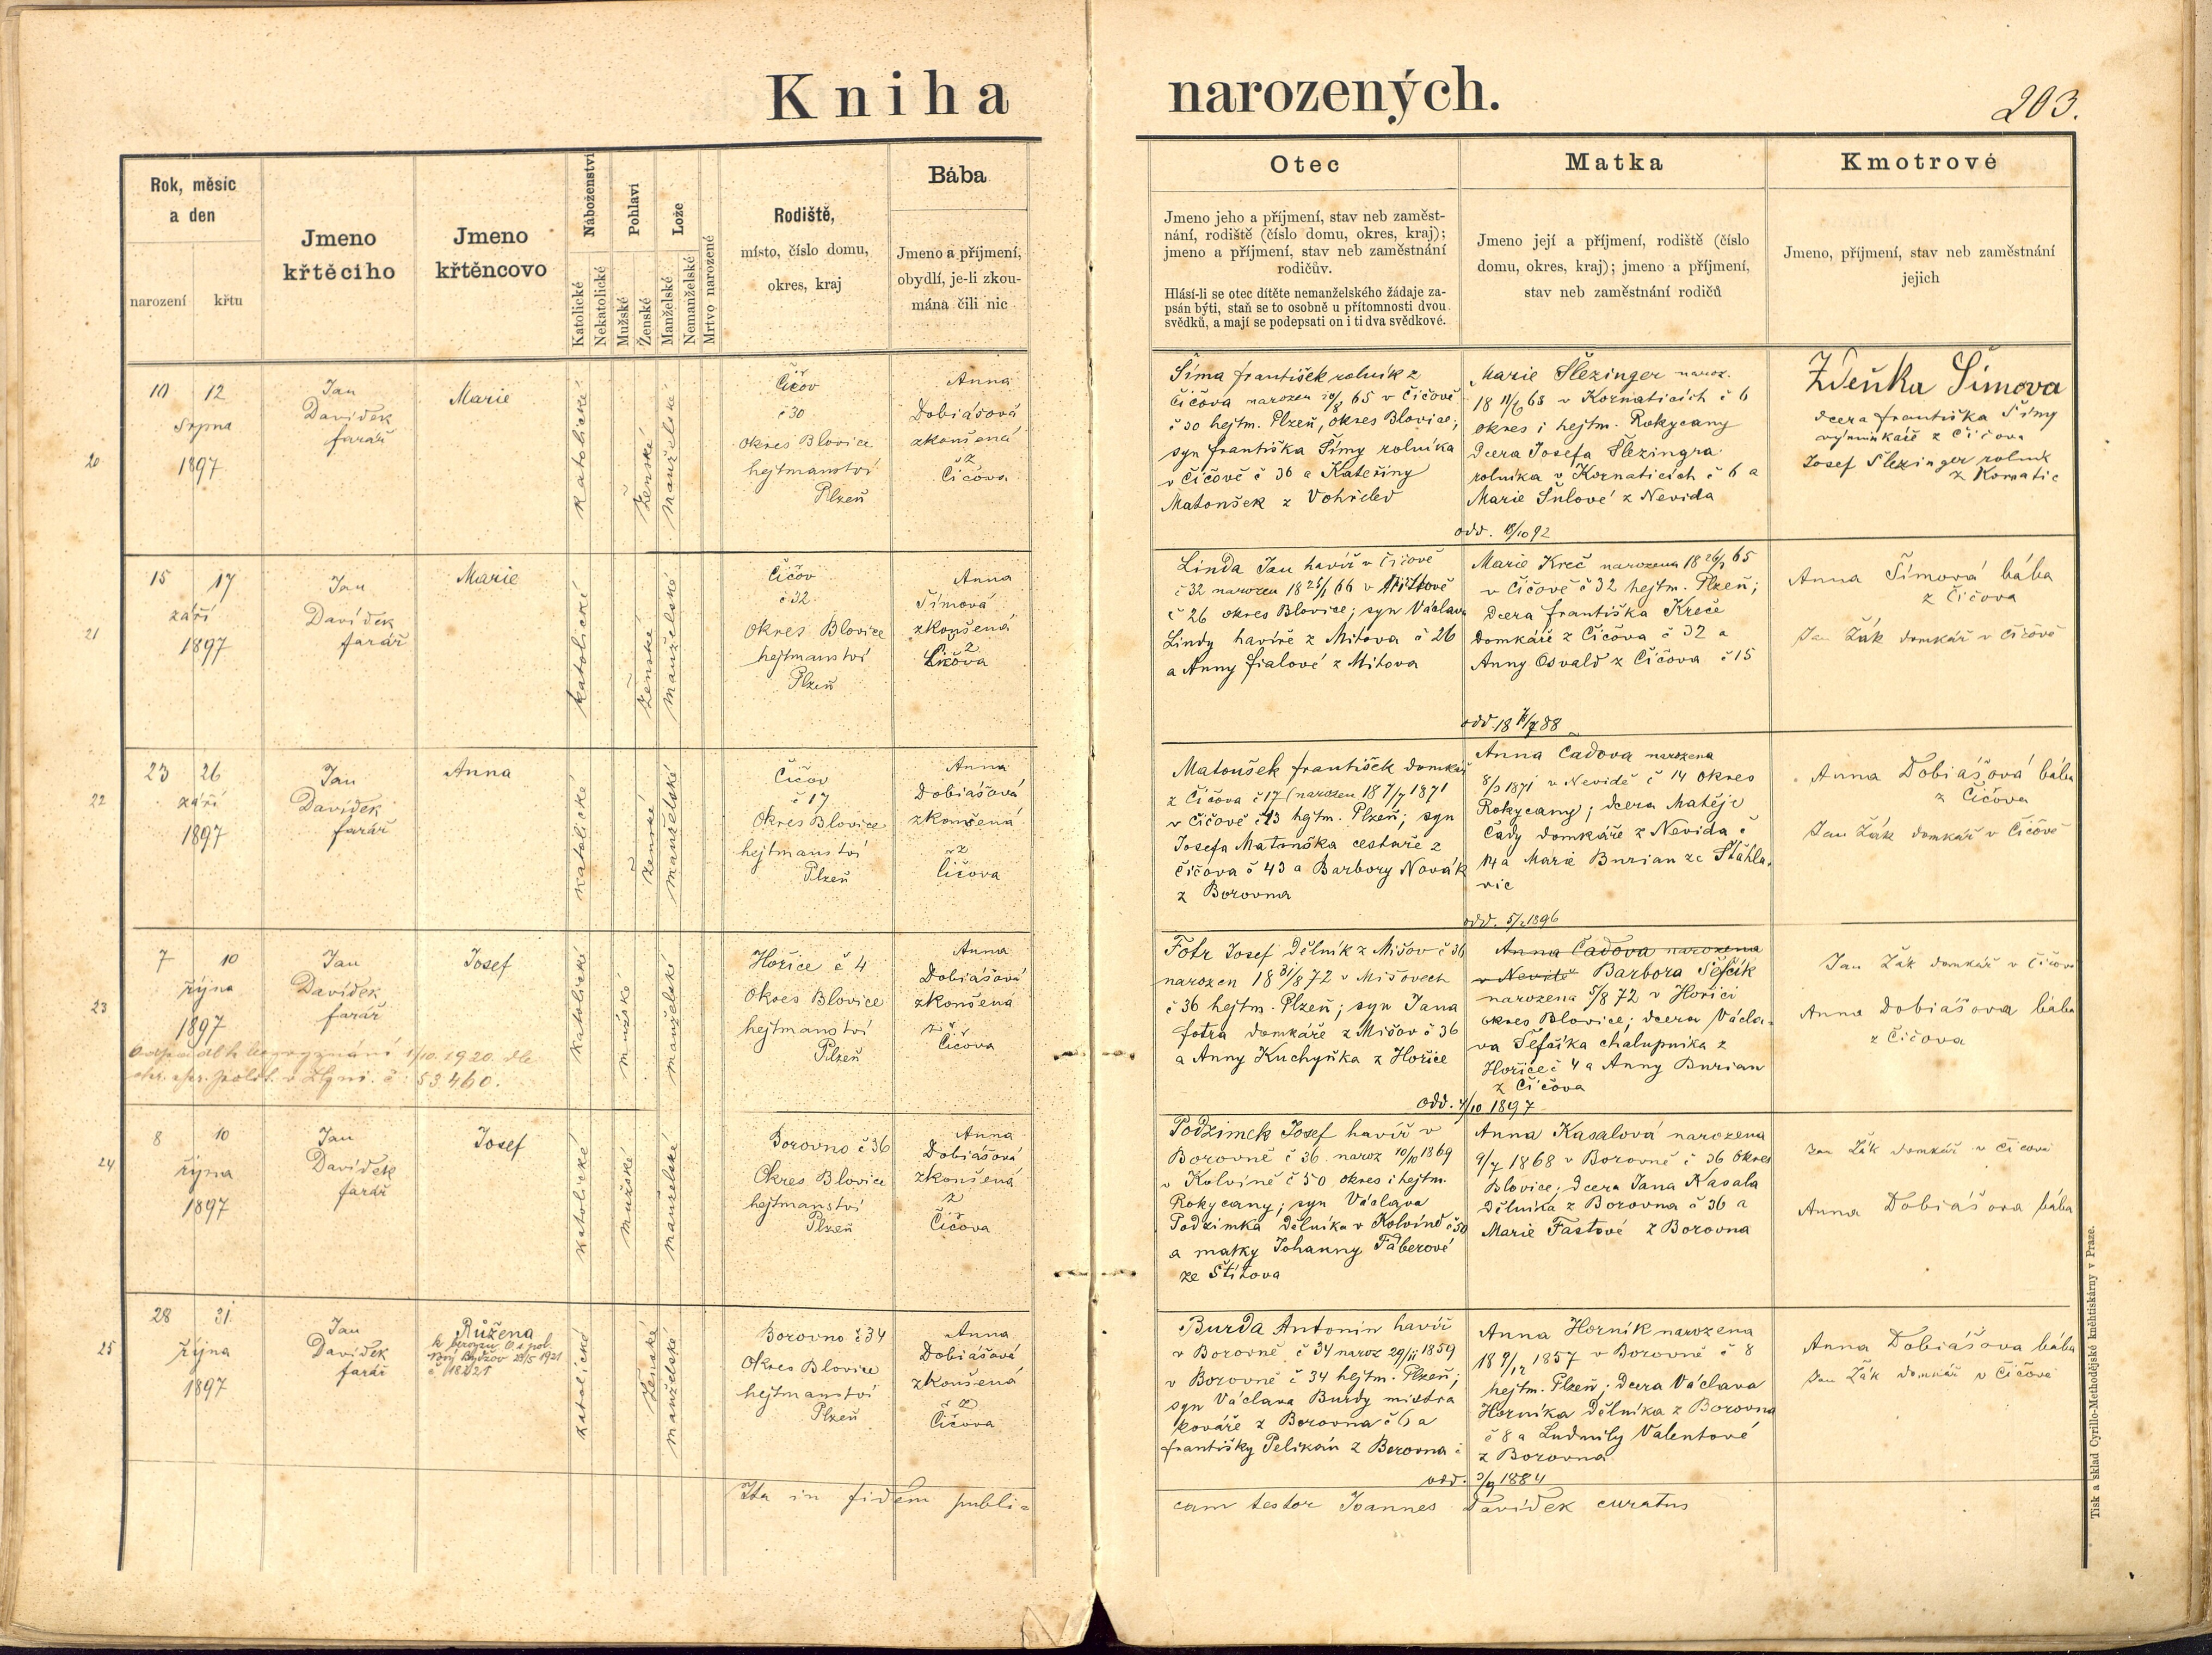 Kniha narozených.
203.
Rok, měsíc
a den
narození
křtu
Jmeno
křtěcího
Jmeno
křtěncovo
Náboženství
Katolické
Nekatolické
Pohlaví
Mužské
Ženské
Lože
Manželské
Nemanželské
Mrtvo narozené
Rodiště,
místo, číslo domu,
okres, kraj
Bába
Jmeno a příjmení,
obydlí, je-li zkou-
mána čili nic
Otec
Jmeno jeho a příjmení, stav neb zaměst-
nání, rodiště (číslo domu, okres, kraj);
jmeno a příjmení, stav neb zaměstnání
rodičův.
Hlásí-li se otec dítěte nemanželského žádaje za-
psán býti, staň se to osobně u přítomnosti dvou
svědků, a mají se podepsati on i ti dva svědkové.
Matka
Jmeno její a příjmení, rodiště (číslo
domu, okres, kraj); jmeno a příjmení,
stav neb zaměstnání rodičů
Kmotrové
Jmeno, příjmení, stav neb zaměstnání
jejich
20
10 12
Srpna
1897
Jan
Davídek
farář
Marie
Katolické
Ženské
Manželské
Čičov
č 30
Okres Blovice
hejtmanství
Plzeň
Anna
Dobiášová
zkoušená
z
Čičova
Šíma František rolník z
Čičova narozen 65 v Čičově
č 30 hejtm. Plzeň, okres Blovice;
syn Františka Šímy rolníka
v Čičově č 30 a Kateřiny
Matoušek z Vohřeled
Marie Šlezinger naroz.
18 68 v Kornaticích č 6
okres i hejtm. Rokycany
dcera Josefa Šlezingra
rolníka v Kornaticích č 6 a
Marie Šulové z Nevida
odd. 18/10 92
Zdeňka Šímova
dcera Františka Šímy
výminkáře z Čičova
Josef Šlezinger rolník
z Kornatic
21
15 17
září
1897
Jan
Davídek
farář
Marie
katolické
ženské
manželské
Čičov
č 32
Okres Blovice
hejtmanství
Plzeň
Anna
Šímová
zkoušená
z
Čičova
Linda Jan havíř v Čičově
č 32 narozen 18 25/1 66 v Mítově
č 26 okres Blovice; syn Václava
Lindy havíře z Mítova č 26
a Anny Fialové z Mítova
Marie Kreč narozena 18 65
v Čičově č 32 hejtm. Plzeň;
dcera Františka Kreče
domkáře z Čičova č 32 a
Anny Osvald z Čičova č 15
odd. 18 88
Anna Šímová bába
z Čičova
Jan Žák domkář v Čičově
22
23 26
září
1897
Jan
Davídek
farář
Anna
katolické
ženské
manželské
Čičov
č 17
Okres Blovice
hejtmanství
Plzeň
Anna
Dobiášová
zkoušená
z
Čičova
Matoušek František domkář
z Čičova č 17 (narozen 18 7/7 1871
v Čičově č 43 hejtm. Plzeň; syn
Josefa Matouška cestaře z
Čičova č 43 a Barbory Novák
z Borovna
Anna Čadova narozena
8/3 1871 v Nevidě č 14 okres
Rokycany; dcera Matěje
Čady domkáře z Nevida č
14 a Marie Burian ze Šťáhla-
vic
odd. 5/2 1896
Anna Dobiášová bába
z Čičova
Jan Žák domkář v Čičově
23
7 10
října
1897
Jan
Davídek
farář
Josef
katolické
mužské
manželské
Hořice č 4
Okres Blovice
hejtmanství
Plzeň
Anna
Dobiášová
zkoušená
z
Čičova
1/10. 1920. dle
č: 53460.
Fotr Josef dělník z Mišov č 36
narozen 18 31/8 72 v Mišovech
č 36 hejtm. Plzeň; syn Jana
Fotra domkáře z Mišov č 36
a Anny Kuchyňka z Hořice
Anna Čadova narozena
v Nevidě Barbora Šefčík
narozena 5/8 72 v Hořici
okres Blovice; dcera Václa-
va Šefčíka chalupníka z
Hořice č 4 a Anny Burian
z Čičova
odd. 4/10 1897
Jan Žák domkář v Čičově
Anna Dobiášova bába
z Čičova
24
8 10
října
1897
Jan
Davídek
farář
Josef
katolické
mužské
manželské
Borovno č 36
Okres Blovice
hejtmanství
Plzeň
Anna
Dobiášová
zkoušená
z
Čičova
Podzimek Josef havíř v
Borovně č 36 naroz 10/10 1869
v Kolvíně č 50 okres i hejtm.
Rokycany; syn Václava
Podzimka dělníka v Kolvíně č 50
a matky Johanny Fáberové
ze Štítova
Anna Kasalová narozena
9/7 1868 v Borovně č 36 okres
Blovice; dcera Jana Kasala
dělníka z Borovna č 36 a
Marie Fastové z Borovna
Jan Žák domkář v Čičově
Anna Dobiášova bába
25
28 31
října
1897
Jan
Davídek
farář
Růžena
Nový Bydžov 23/5 1921
č 18221
katolické
ženské
manželské
Borovno č 34
Okres Blovice
hejtmanství
Plzeň
Anna
Dobiášová
zkoušená
z
Čičova
Burda Antonín havíř
v Borovně č 34 naroz 29/11 1859
v Borovně č 34 hejtm. Plzeň;
syn Václava Burdy mistra
kováře z Borovna č 6 a
Františky Pelikán z Borovna
Anna Horník narozena
18 9/12 1857 v Borovně č 8
hejtm. Plzeň; dcera Václava
Horníka dělníka z Borovna
č 8 a Ludmily Valentové
z Borovna
odd. 3/9 1884
Anna Dobiášova bába
Jan Žák domkář v Čičově
Ita in fidem publi-
cam testor Joannes Davídek curatus
Tisk a sklad Cyrillo-Methodějské knihtiskárny v Praze.